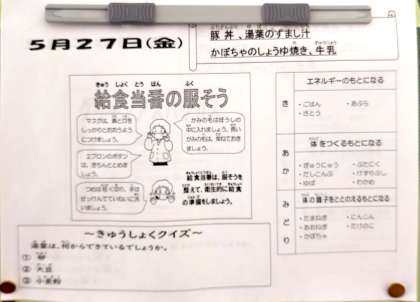 5月27日(金)
豚丼、湯葉のすまし汁
かぼちゃのしょうゆ焼き、牛乳
きゅう しょく とう ばん ふく
給食当番の服そう
マスクは、鼻と口を
しっかりとおおうよう
につけましょう。
かみの毛はぼうしの
中に入れましょう。長い
かみの毛は、束ねておき
ましょう。
エプロンのボタン
は、きちんととめま
しょう。
つめは短く切り、手は
せっけんでていねいに洗
いましょう。
給食当番は、服そうを
整えて、衛生的に給食
の準備をしましょう。
～きゅうしょくクイズ～
湯葉は、何からできているでしょうか。
① 卵
② 大豆
③ 小麦粉
エネルギーのもとになる
き
・ごはん ・あぶら
・さとう
体をつくるもとになる
あか
・ぎゅうにゅう ・ぶたにく
・だしこんぶ ・けずりぶし
・ゆば ・わかめ
体の調子をととのえるもとになる
みどり
・たまねぎ ・にんじん
・あおねぎ ・たけのこ
・かぼちゃ